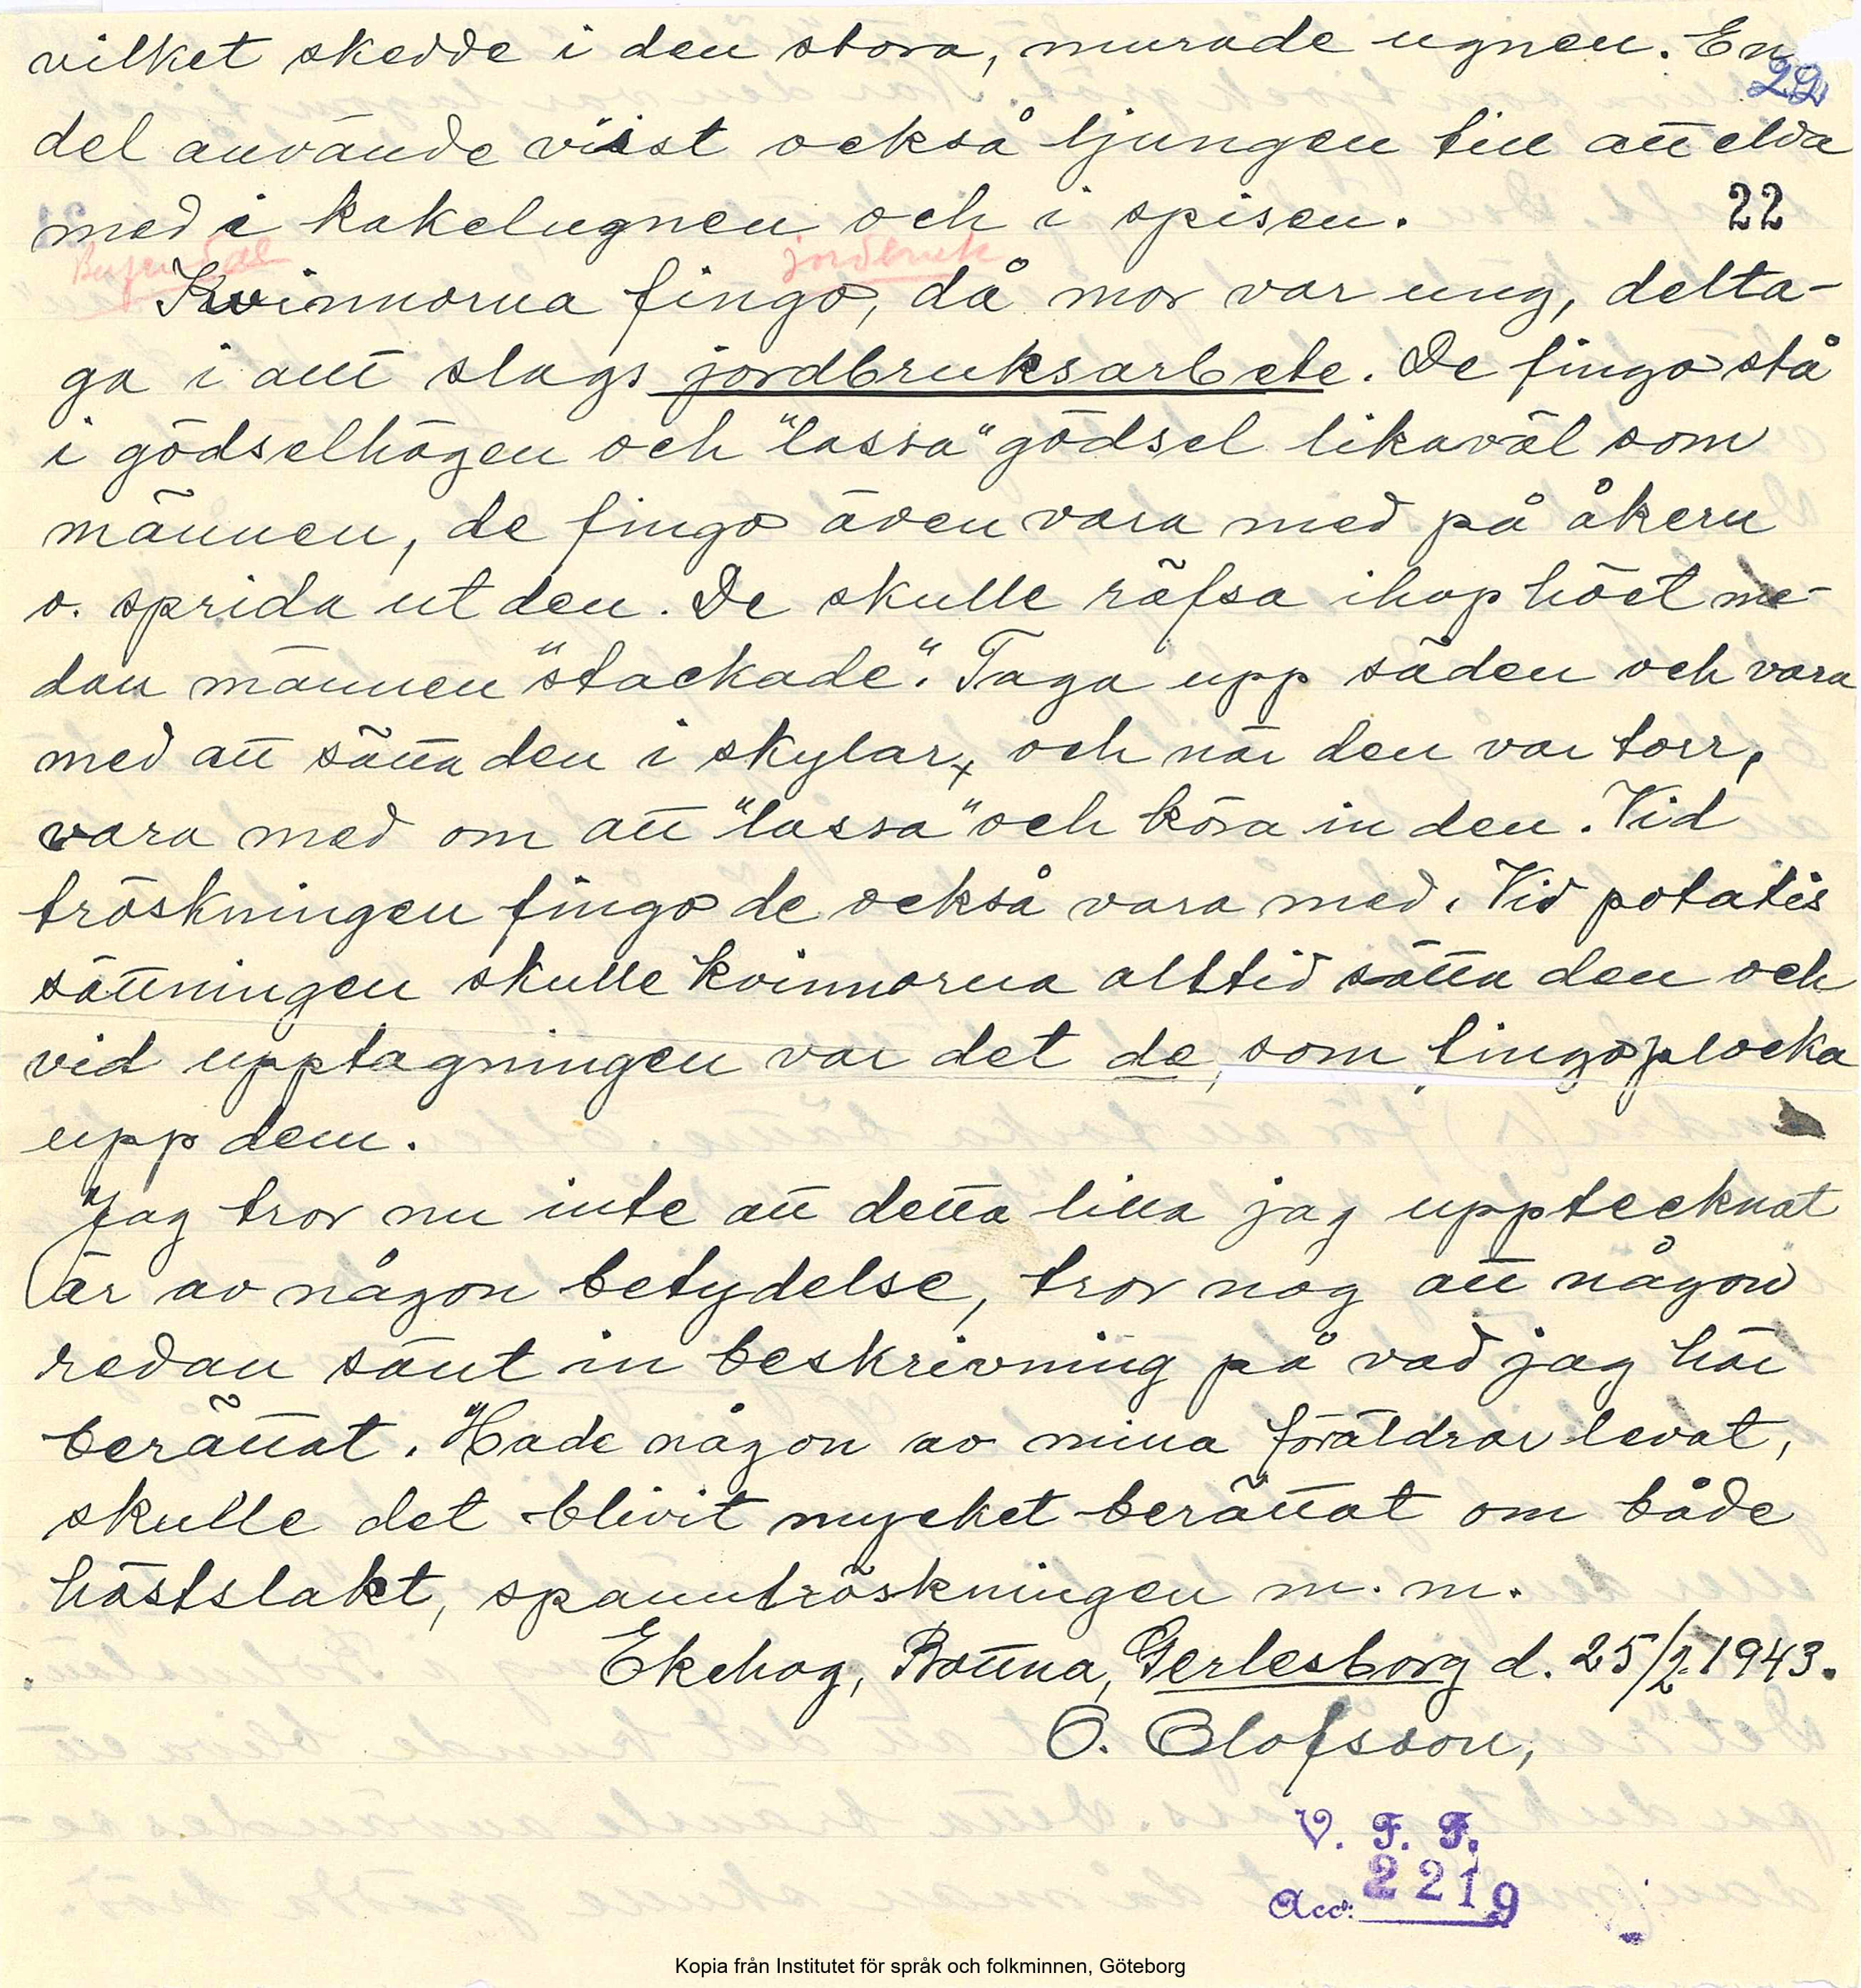 vilket skedde i den stora, murade ugnen. En
22
del använde visst också ljungen till att elda
med i kakelugnen och i spisen.
22
jordbruk
Kvinnorna fingo, då mor var ung, delta-
ga i allt slags jordbruksarbete. De fingo stå
i gödselhögen och "lassa" gödsel likaväl som
männen, de fingo även vara med på åkern
o. sprida ut den. De skulle räfsa ihop höet me-
dan männen "stackade". Taga upp säden och vara
med att sätta den i skylar, och när den var torr,
vara med om att "lassa" och köra in den. Vid
tröskningen fingo de också vara med. Vid potatis
sättningen skulle kvinnorna alltid sätta den och
vid upptagningen var det de, som fingo plocka
upp dem.
"Jag tror nu inte att detta lilla jag upptecknat
är av någon betydelse, tror nog att någon
redan sänt in beskrivning på vad jag här
berättat. "Hade någon av mina föräldrar levat,
skulle det blivit mycket berättat om både
hästslakt, spanntröskningen m. m.
Ekehog, Bottna, Gerlesborg d. 25/2 1943.
O. Olofsson,
V. F. F.
Acc: 2219
Kopia från Institutet för språk och folkminnen, Göteborg